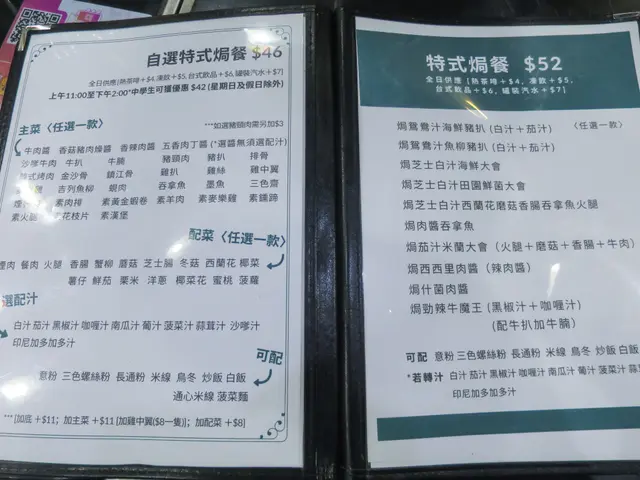 自選特式焗餐 $46
全日供應 [熱茶啡+$4, 凍飲+$5, 台式飲品+$6, 罐裝汽水+$7]
上午11:00至下午2:00*中學生可獲優惠 $42 (星期日及假日除外)
主菜〈任選一款〉
***如選豬頸肉需另加$3
牛肉醬 香菇豬肉燥醬 香辣肉醬 五香肉丁醬 (*選醬無須選配汁)
沙嗲牛肉 牛扒 牛腩 豬頸肉 豬扒 排骨
式烤肉 金沙骨 鎮江骨 雞扒 雞絲 雞中翼
吉列魚柳 蜆肉 吞拿魚 墨魚 三色齋
素肉排 素黃金蝦卷 素羊肉 素麥樂雞 素鐵蹄
素火腿 花枝片 素漢堡
配菜〈任選一款〉
煙肉 餐肉 火腿 香腸 蟹柳 蘑菇 芝士腸 冬菇 西蘭花 椰菜
薯仔 鮮茄 粟米 洋蔥 椰菜花 蜜桃 菠蘿
選配汁
白汁 茄汁 黑椒汁 咖喱汁 南瓜汁 葡汁 菠菜汁 蒜茸汁 沙嗲汁
印尼加多加多汁
可配
意粉 三色螺絲粉 長通粉 米線 烏冬 炒飯 白飯
通心米線 菠菜麵
*** [加底 +$11; 加主菜 +$11 [加雞中翼($8一隻)]; 加配菜 +$8]
特式焗餐 $52
全日供應 [熱茶啡+$4, 凍飲+$5,
台式飲品+$6, 罐裝汽水+$7]
焗鴛鴦汁海鮮豬扒 (白汁+茄汁) 〈任選一款〉
焗鴛鴦汁魚柳豬扒 (白汁+茄汁)
焗芝士白汁海鮮大會
焗芝士白汁田園鮮菌大會
焗芝士白汁西蘭花蘑菇香腸吞拿魚火腿
焗肉醬吞拿魚
焗茄汁米蘭大會 (火腿+蘑菇+香腸+牛肉)
焗西西里肉醬 (辣肉醬)
焗什菌肉醬
焗勁辣牛魔王 (黑椒汁+咖喱汁)
(配牛扒加牛腩)
可配 意粉 三色螺絲粉 長通粉 米線 烏冬 炒飯 白飯
*若轉汁 白汁 茄汁 黑椒汁 咖喱汁 南瓜汁 葡汁 菠菜汁 蒜
印尼加多加多汁